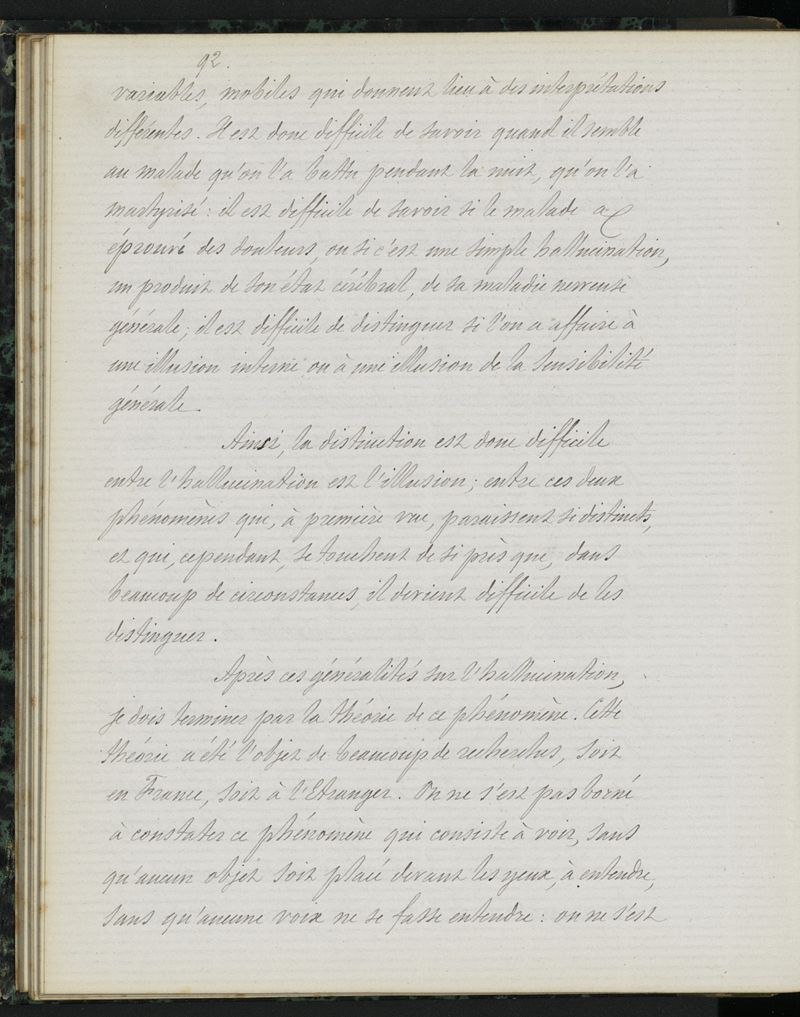 92.
variables, mobiles qui donnent lieu à des interprétations
différentes. Il est donc difficile de savoir quand il semble
au malade qu'on l'a battu pendant la nuit, qu'on l'a
martyrisé : il est difficile de savoir si le malade a
éprouvé des douleurs, ou si c'est une simple hallucination,
un produit de son état cérébral, de sa maladie nerveuse
générale ; il est difficile de distinguer si l'on a affaire à
une illusion interne ou à une illusion de la sensibilité
générale.
Ainsi, la distinction est donc difficile
entre l'hallucination est l'illusion ; entre ces deux
phénomènes qui, à première vue, paraissent si distincts,
et qui, cependant, se touchent de si près que, dans
beaucoup de circonstances, il devient difficile de les
distinguer.
Après ces généralités sur l'hallucination,
je dois terminer par la théorie de ce phénomène. Cette
théorie a été l'objet de beaucoup de recherches, soit
en France, soit à l'Etranger. On ne s'est pas borné
à constater ce phénomène qui consiste à voir, sans
qu'aucun objet soit placé devant les yeux, à entendre,
sans qu'aucune voix ne se fasse entendre : on ne s'est